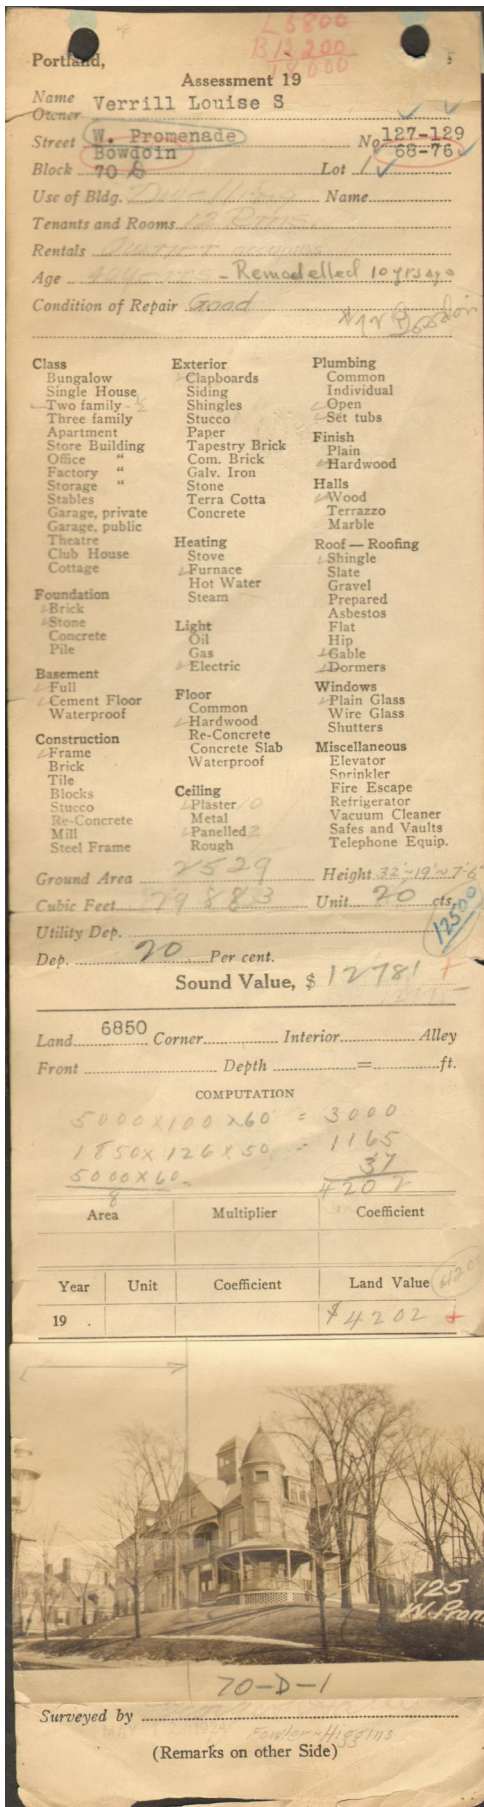 L 5800
B 12200
Portland,
Assessment 19
Name
Owner Verrill Louise S
Street W. Promenade No 127-129
Bowdoin 68-76
Block 70 D Lot 1
Use of Bldg. Dwelling Name
Tenants and Rooms 12 Rms.
Rentals Owner occupies
Age 40 years - Remodelled 10 yrs ago
Condition of Repair Good
Bowdoin
Class
Bungalow
Single House
Two family - 2
Three family
Apartment
Store Building
Office "
Factory "
Storage "
Stables
Garage, private
Garage, public
Theatre
Club House
Cottage
Foundation
Brick
Stone
Concrete
Pile
Basement
Full
Cement Floor
Waterproof
Construction
Frame
Brick
Tile
Blocks
Stucco
Re-Concrete
Mill
Steel Frame
Exterior
Clapboards
Siding
Shingles
Stucco
Paper
Tapestry Brick
Com. Brick
Galv. Iron
Stone
Terra Cotta
Concrete
Heating
Stove
Furnace
Hot Water
Steam
Light
Oil
Gas
Electric
Floor
Common
Hardwood
Re-Concrete
Concrete Slab
Waterproof
Ceiling
Plaster 10
Metal
Panelled 2
Rough
Plumbing
Common
Individual
Open
Set tubs
Finish
Plain
Hardwood
Halls
Wood
Terrazzo
Marble
Roof — Roofing
Shingle
Slate
Gravel
Prepared
Asbestos
Flat
Hip
Gable
Dormers
Windows
Plain Glass
Wire Glass
Shutters
Miscellaneous
Elevator
Sprinkler
Fire Escape
Refrigerator
Vacuum Cleaner
Safes and Vaults
Telephone Equip.
Ground Area 2529 Height 32'-19'-7'6"
Cubic Feet 79883 Unit 20 cts.
12500
Utility Dep.
Dep. 20 Per cent.
Sound Value, $ 12781 +
Land 6850 Corner Interior Alley
Front Depth = ft.
COMPUTATION
5000 x 100 x 60 = 3000
1850 x 126 x 50 = 1165
5000 x 60 37
8 4202
Area Multiplier Coefficient
Year Unit Coefficient Land Value
19 . $4202 +
125
W. Prom
70-D-1
Surveyed by
Fowler - Higgins
(Remarks on other Side)